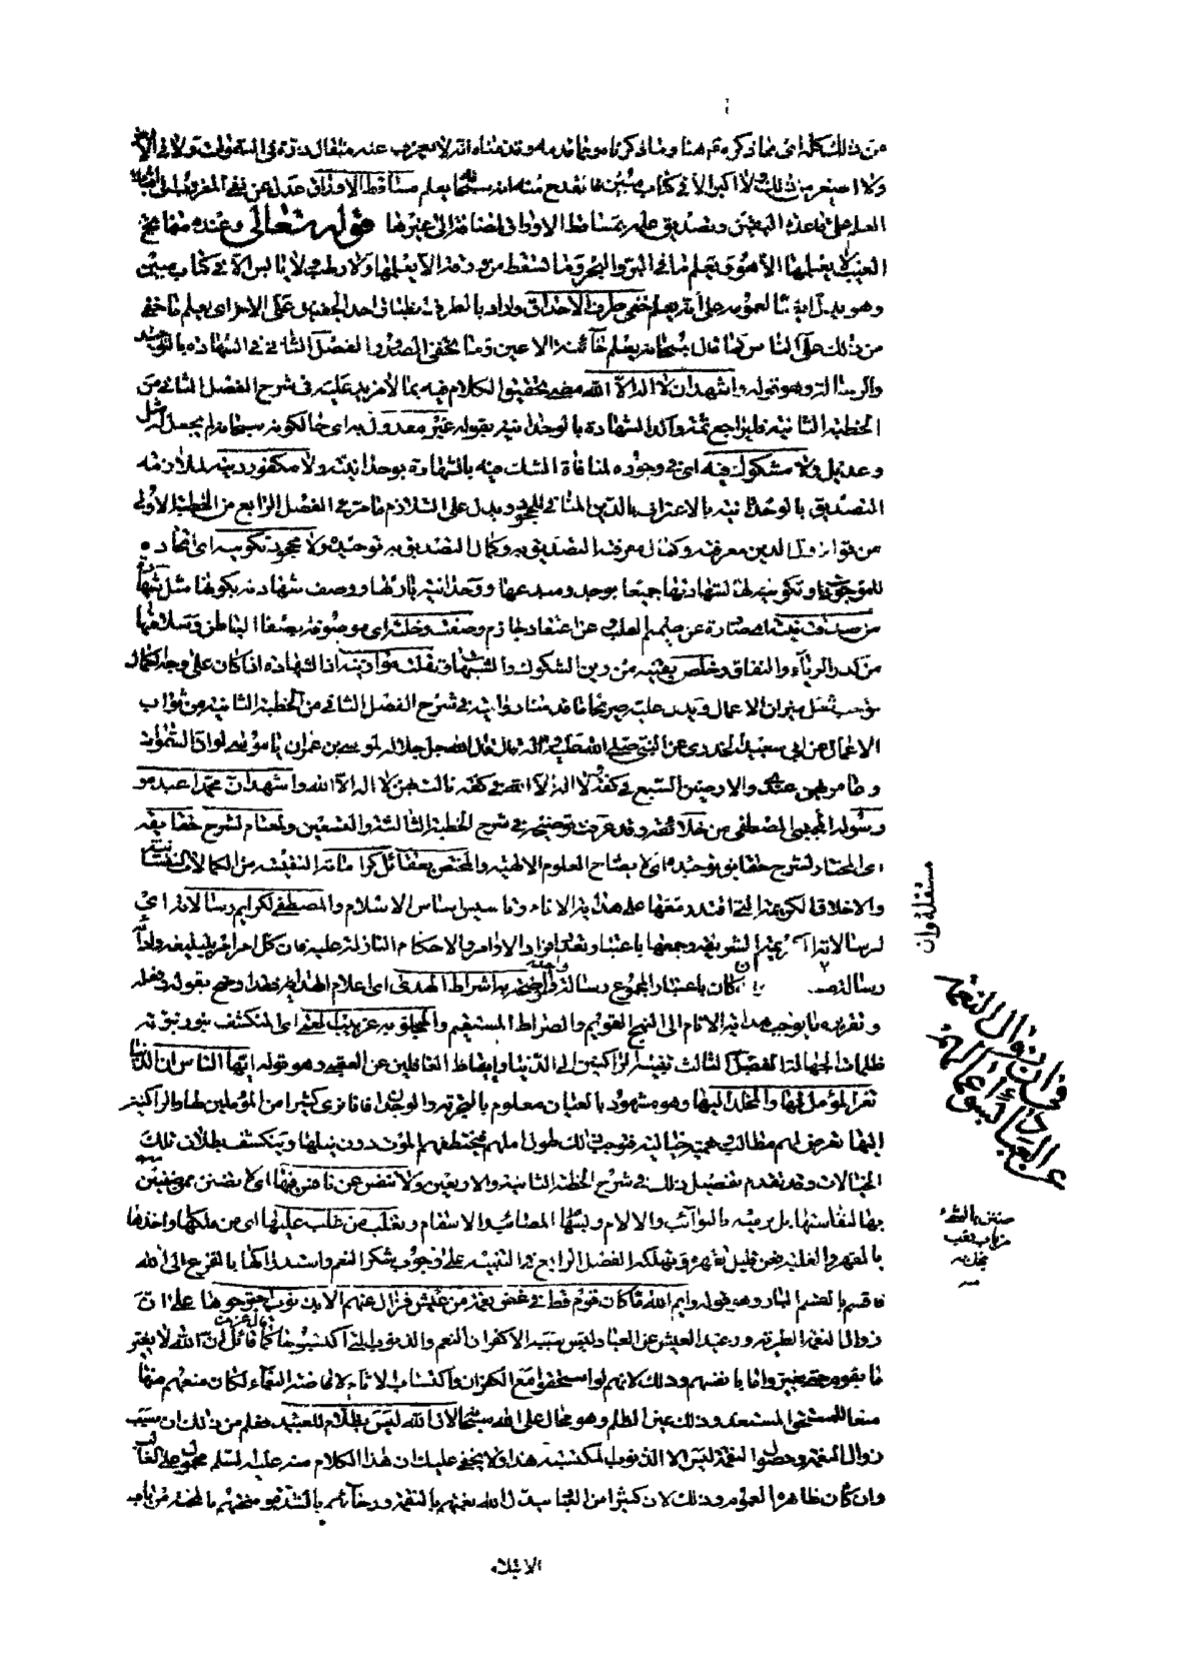 من ذلك كله اى مما ذكره هنا وما ذكرناه فيما قدمه وقد منا انه لا يعزب عنه مثقال ذرة فى السموات ولا فى الارض
ولا اصغر من ذلك ولا اكبر الا فى كتاب مبين يعلم مساقط الاوراق عدل عن
العلم على بمساقط الاوراق المضافة الى غيرها قوله تعالى وعنده مفاتح
الغيب لا يعلمها الا هو ويعلم ما فى البر والبحر وما تسقط من ورقة الا يعلمها ولا رطب ولا يابس الا فى كتاب مبين
وهو يدل على انه يعلم خفى طرف الاحداق واراد بالطرف احد الجفنين على الاخر اى يعلم ما خفى
من ذلك على الناس كما قال سبحانه يعلم خائنة الاعين وما تخفى الصدور الفصل الثانى فى الشهادة بالتوحيد
والرسالة وهو قوله واشهد ان لا اله الا الله تحقيق الكلام فيه بما لا مزيد عليه فى شرح الفصل الثانى من
الخطبة الثانية فليراجع ثمة واكد الشهادة بالوحدانية بقوله غير معدول به اى حالكونه سبحانه لم يجعل له مثل
وعديل ولا مشكوك فيه اى فى وجوده لمنافاة الشك فيه بالشهادة بوحدانيته ولا مكفور دينه لملازمة
التصديق بالوحدانية بالاعتراف بالدين المنافى للجحود ويدل على التلازم ما مر فى الفصل الرابع من الخطبة الاولى
من قوله اول الدين معرفته وكمال معرفته التصديق به وكمال التصديق به توحيده ولا مجحود تكوينه اى ايجاده
للموجودات وتكوينه لها لشهادتها جميعا بوجود مبدعها ووحدانية بارئها ووصف شهادته بكونها مثل شهادة
من صدقت نيته لصادرة عن صميم القلب عن اعتقاد جازم وصفت دخلته اى موصوفة بصفاء الباطن وسلامتها
من كدر الرياء والنفاق وخلص يقينه من رين الشكوك والشبهات وثقلت موازينه اذ الشهادة اذا كان على وجه الكمال
توجب ثقل ميزان الاعمال ويدل عليه صريحا ما قد منا روايته فى شرح الفصل الثانى من الخطبة الثانية من ثواب
الاعمال عن ابى سعيد الخدرى عن النبى صلى الله عليه واله قال قال الله جل جلاله لموسى بن عمران يا موسى لو ان السموات
وعامريهن عندى والارضين السبع فى كفة ولا اله الا الله فى كفة مالت بهن لا اله الا الله واشهد ان محمدا عبده
ورسوله المجتبى المصطفى من خلائقه وقد عرفت توضيحه فى شرح الخطبة الثالثة والتسعين والمعتام لشرح حقائقه
اى المختار لشرح حقايق توحيده اى لايضاح العلوم الالهية والمختص بعقائل كراماته النفيسة من الكمالات النفسانية
والاخلاق الكريمة التى اقتدر معها على هداية الانام وتاسيس اساس الاسلام والمصطفى لكرايم رسالاته اى
لرسالاته الكريمة الشريفة وجمعها باعتبار تعدد افراد الاوامر والاحكام النازلة عليه فان كل امر امر بتبليغه واداه
رسالة كان باعتبار المجموع رسالة واحدة والموضحة به اشراط الهدى اى اعلام الهداية فقد اوضح بقوله وفعله
وتقريره ما يوجب هداية الانام الى النهج القويم والصراط المستقيم والمجلو به غربيب العمى اى المنكشف بنور نبوته
ظلمات الجهالة الفصل الثالث تنبيه الراكنين الى الدنيا وايقاظ الغافلين عن العقبى وهو قوله ايها الناس ان الدنيا
تغر المؤمل لها والمخلد اليها وهو مشهود بالعيان معلوم بالتجربة والوجدان فانا نرى كثيرا من المؤملين لها والراكنين
اليها تعرض لهم مطالب وهمية خيالية فتوجب ذلك طول املهم فيختطفهم الموت دون نيلها وينكشف بطلان تلك
الخيالات وقد تقدم تفصيل ذلك فى شرح الخطبة الثانية والاربعين ولا تنفس عن نافس فيها اى لا تضنن بمن يضن
بها لنفاستها بل ترميه بالنوائب والالام وسهام المصائب والاسقام وتغلب من غلب عليها اى من ملكها واخذها
بالقهر والغلبة فعن قليل تقهره وتهلكه الفصل الرابع فى التنبيه على وجوب شكر النعم واستدراكها بالفزع الى الله
فاقسم بالقسم البار وهو قوله وايم الله ما كان قوم قط فى غض نعمة من عيش فزال عنهم الا بذنوب اجترحوها على ان
زوال النعمة الطرية ورغيد العيش عن العباد ليس سببه الا كفران النعم والذنوب التى اكتسبوها كما قال ان الله لا يغير
ما بقوم حتى يغيروا ما بانفسهم وذلك لانهم لو استحقوا مع الكفران واكتساب الاثام لافاضة النعماء لكان منعهم منها
منعا للمستحق المستعد وذلك عين الظلم وهو محال على الله سبحانه لان الله ليس بظلام للعبيد فعلم من ذلك ان سبب
زوال النعمة وحصول النقمة ليس الا الذنوب المكتسبة هذا ولا يخفى عليك ان هذا الكلام منه عليه السلم محمول على الغالب
وان كان ظاهره العموم وذلك لان كثيرا من العباد يبدل الله نعمتهم بالنقمة ورخائهم بالشدة ومنحتهم بالمحنة من باب
الابتلاء
مستقلة وان
فى ان زوال النعماء
عن العباد لسوء اعمالهم
ضنن بالشىء
من باب تعب
بخل به